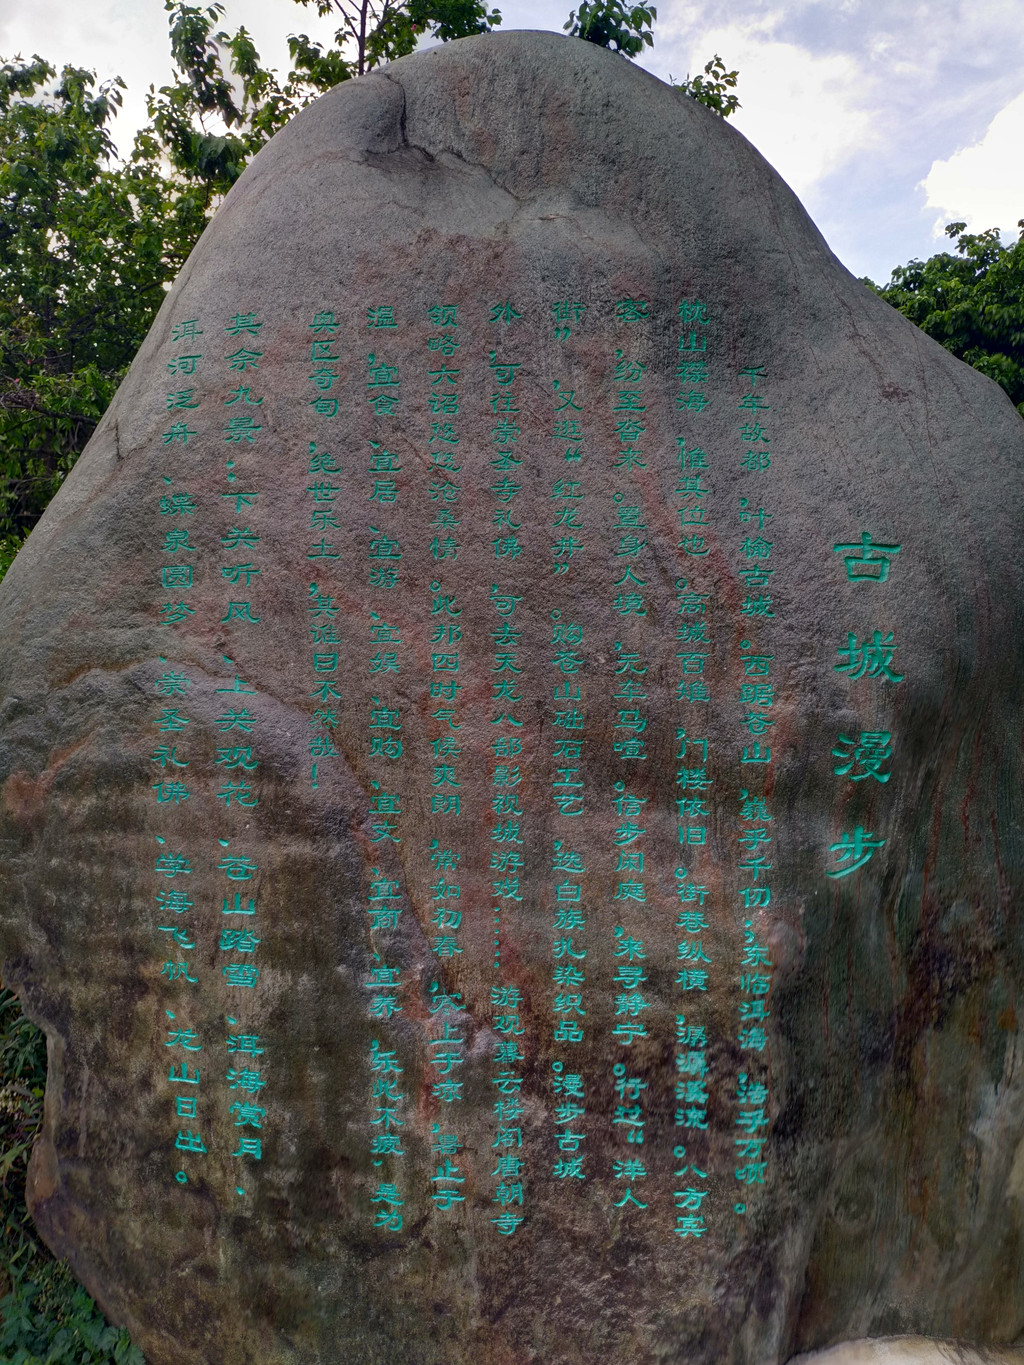 古城漫步
千年故都，叶榆古城。西踞苍山，巍乎千仞；东临洱海，浩乎万顷。
枕山襟海，惟其位也。高城百雉，门楼依旧。街巷纵横，潺潺溪流。八方宾
客，纷至沓来。置身人境，元车马喧。信步闲庭，来寻静宁。行过“洋人
街”，又逛“红龙井”。购苍山础石工艺，选白族扎染织品。漫步古城
外，可往崇圣寺礼佛，可去天龙八部影视城游戏……游观摹云楼阁唐朝寺
领略六诏悠悠沧桑情。此邦四时气候爽朗，常如初春，寒止于凉，暑止于
温，宜食、宜居、宜游、宜娱、宜购、宜文、宜商、宜养，乐此不疲，是为
奥区奇甸，绝世乐土，其谁曰不然哉！
其余九景：下关听风、上关观花、苍山踏雪、洱海赏月、
洱河泛舟、蝶泉圆梦、崇圣礼佛、学海飞帆、龙山日出。